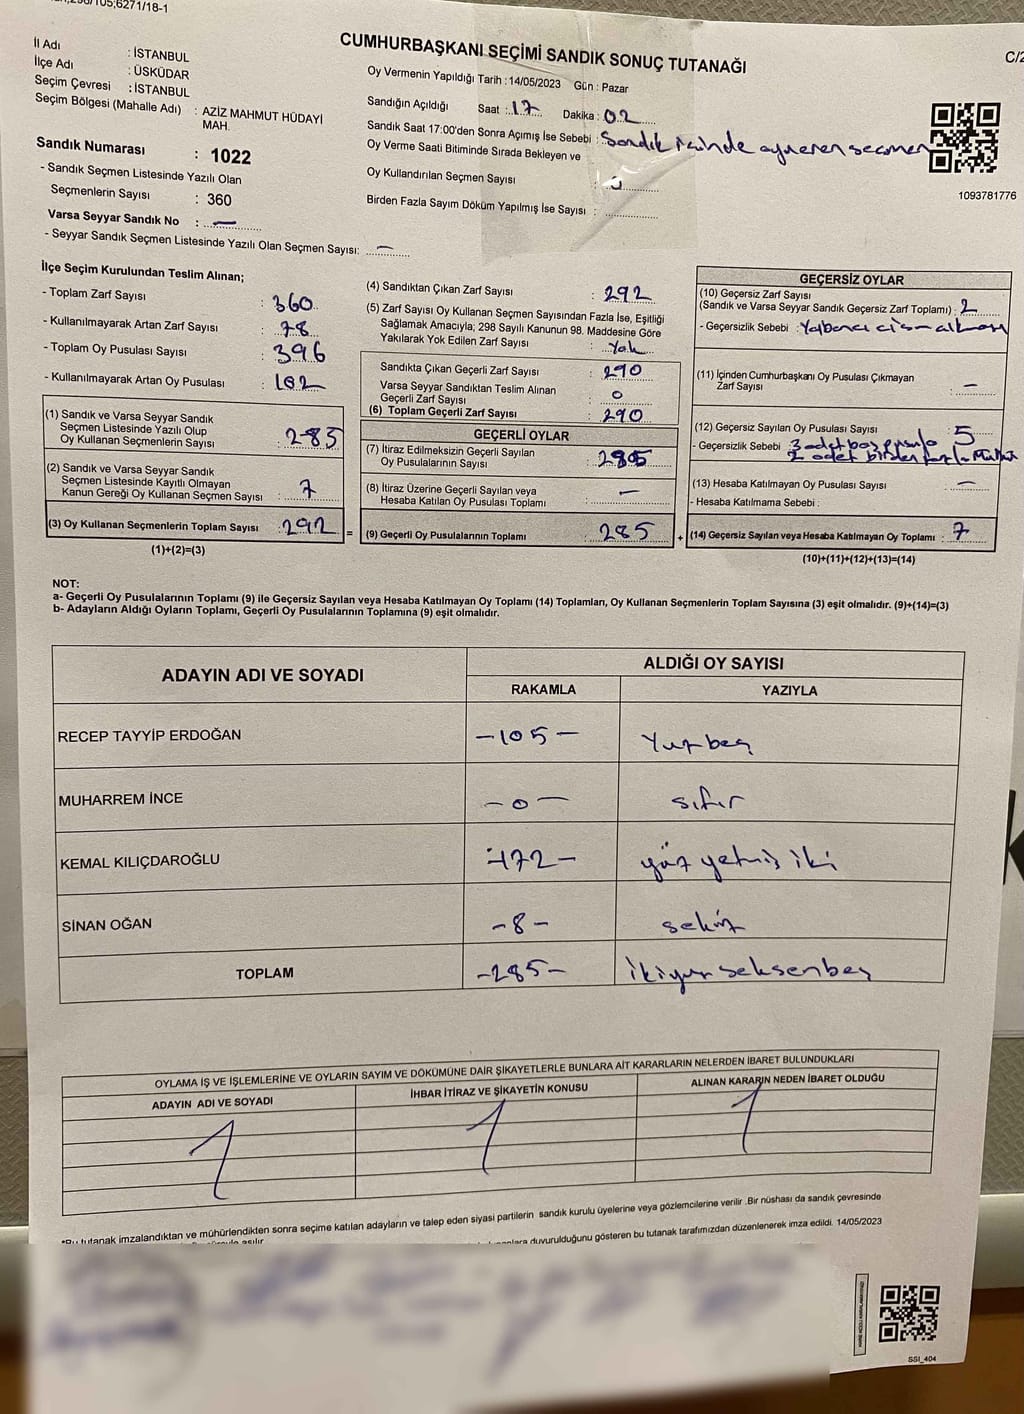 6271/18-1
CUMHURBAŞKANI SEÇİMİ SANDIK SONUÇ TUTANAĞI
İl Adı : İSTANBUL
İlçe Adı : ÜSKÜDAR
Seçim Çevresi : İSTANBUL
Seçim Bölgesi (Mahalle Adı) : AZİZ MAHMUT HÜDAYİ
MAH.
Sandık Numarası : 1022
- Sandık Seçmen Listesinde Yazılı Olan
Seçmenlerin Sayısı : 360
Varsa Seyyar Sandık No : —
- Seyyar Sandık Seçmen Listesinde Yazılı Olan Seçmen Sayısı: —
Oy Vermenin Yapıldığı Tarih : 14/05/2023 Gün : Pazar
Sandığın Açıldığı Saat : 17 Dakika : 02
Sandık Saat 17:00'den Sonra Açımış İse Sebebi : Sandık içinde oy veren seçmen
Oy Verme Saati Bitiminde Sırada Bekleyen ve
Oy Kullandırılan Seçmen Sayısı :
Birden Fazla Sayım Döküm Yapılmış İse Sayısı :
C/2
1093781776
İlçe Seçim Kurulundan Teslim Alınan;
- Toplam Zarf Sayısı : 360
- Kullanılmayarak Artan Zarf Sayısı : 78
- Toplam Oy Pusulası Sayısı : 396
- Kullanılmayarak Artan Oy Pusulası : 102
(1) Sandık ve Varsa Seyyar Sandık
Seçmen Listesinde Yazılı Olup
Oy Kullanan Seçmenlerin Sayısı : 285
(2) Sandık ve Varsa Seyyar Sandık
Seçmen Listesinde Kayıtlı Olmayan
Kanun Gereği Oy Kullanan Seçmen Sayısı : 7
(3) Oy Kullanan Seçmenlerin Toplam Sayısı : 292 =
(1)+(2)=(3)
(4) Sandıktan Çıkan Zarf Sayısı : 292
(5) Zarf Sayısı Oy Kullanan Seçmen Sayısından Fazla İse, Eşitliği
Sağlamak Amacıyla; 298 Sayılı Kanunun 98. Maddesine Göre
Yakılarak Yok Edilen Zarf Sayısı : Yok
Sandıkta Çıkan Geçerli Zarf Sayısı : 290
Varsa Seyyar Sandıktan Teslim Alınan
Geçerli Zarf Sayısı : 0
(6) Toplam Geçerli Zarf Sayısı : 290
GEÇERLİ OYLAR
(7) İtiraz Edilmeksizin Geçerli Sayılan
Oy Pusulalarının Sayısı : 285
(8) İtiraz Üzerine Geçerli Sayılan veya
Hesaba Katılan Oy Pusulası Toplamı : —
(9) Geçerli Oy Pusulalarının Toplamı : 285 +
GEÇERSİZ OYLAR
(10) Geçersiz Zarf Sayısı
(Sandık ve Varsa Seyyar Sandık Geçersiz Zarf Toplamı) : 2
- Geçersizlik Sebebi : Yabancı cisim
(11) İçinden Cumhurbaşkanı Oy Pusulası Çıkmayan
Zarf Sayısı : —
(12) Geçersiz Sayılan Oy Pusulası Sayısı : 5
- Geçersizlik Sebebi : 3 adet boş pusula
2 adet birden fazla mühür
(13) Hesaba Katılmayan Oy Pusulası Sayısı : —
- Hesaba Katılmama Sebebi :
(14) Geçersiz Sayılan veya Hesaba Katılmayan Oy Toplamı : 7
(10)+(11)+(12)+(13)=(14)
NOT:
a- Geçerli Oy Pusulalarının Toplamı (9) ile Geçersiz Sayılan veya Hesaba Katılmayan Oy Toplamı (14) Toplamları, Oy Kullanan Seçmenlerin Toplam Sayısına (3) eşit olmalıdır. (9)+(14)=(3)
b- Adayların Aldığı Oyların Toplamı, Geçerli Oy Pusulalarının Toplamına (9) eşit olmalıdır.
ADAYIN ADI VE SOYADI ALDIĞI OY SAYISI
RAKAMLA YAZIYLA
RECEP TAYYİP ERDOĞAN -105- Yüzbeş
MUHARREM İNCE -0- sıfır
KEMAL KILIÇDAROĞLU -172- yüz yetmiş iki
SİNAN OĞAN -8- sekiz
TOPLAM -285- ikiyüz seksen beş
OYLAMA İŞ VE İŞLEMLERİNE VE OYLARIN SAYIM VE DÖKÜMÜNE DAİR ŞİKAYETLERLE BUNLARA AİT KARARLARIN NELERDEN İBARET BULUNDUKLARI
ADAYIN ADI VE SOYADI İHBAR İTİRAZ VE ŞİKAYETİN KONUSU ALINAN KARARIN NEDEN İBARET OLDUĞU
*Bu tutanak imzalandıktan ve mühürlendikten sonra seçime katılan adayların ve talep eden siyasi partilerin sandık kurulu üyelerine veya gözlemcilerine verilir .Bir nüshası da sandık çevresinde
duyurulduğunu gösteren bu tutanak tarafımızdan düzenlenerek imza edildi. 14/05/2023
SSI_404